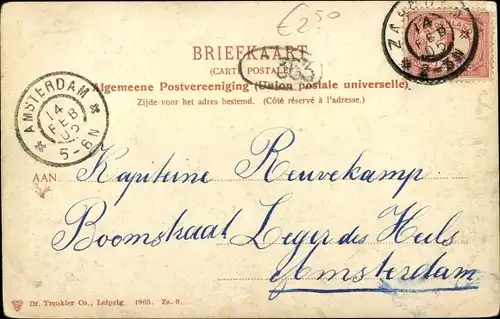 € 2.50
BRIEFKAART
(CARTE POSTALE)
363
Algemeene Postvereeniging (Union postale universelle)
Zijde voor het adres bestemd. (Côté réservé à l'adresse.)
14
FEB
05
2-3N
AMSTERDAM
14
FEB
05
5-6N
AAN
Kapiteine Reuvekamp.
Boomstraat Leger des Heils
Amsterdam
Dr. Trenkler Co., Leipzig. 1905. Za. 9.